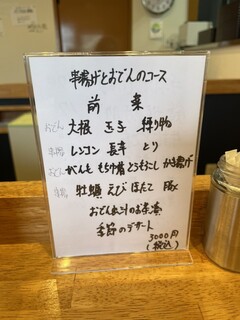 串揚げとおでんのコース
前菜
おでん 大根 玉子 練り物
串揚 レンコン 長芋 とり
おでん がんも もち巾着 とうもろこし かき揚げ
串揚 牡蠣 えび ほたて 豚
おでん出汁のお茶漬
季節のデザート
3000円
(税込)